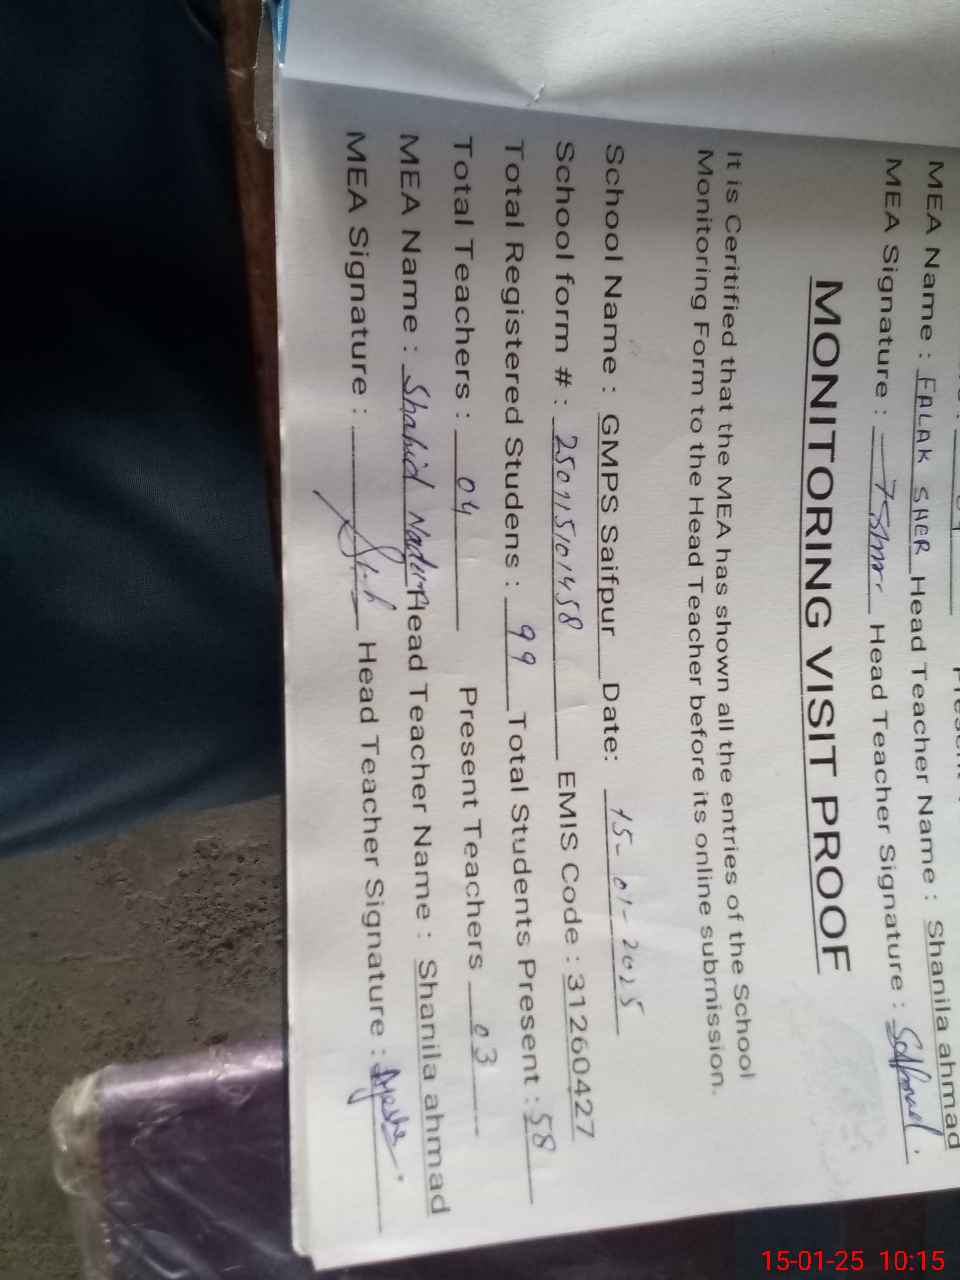 MEA Name : FALAK SHER Head Teacher Name : Shanila ahmad
MEA Signature : Head Teacher Signature :
MONITORING VISIT PROOF
It is Ceritified that the MEA has shown all the entries of the School
Monitoring Form to the Head Teacher before its online submission.
School Name : GMPS Saifpur Date: 15-01-2025
School form # : 250115101458 EMIS Code : 31260427
Total Registered Studens : 99 Total Students Present : 58
Total Teachers : 04 Present Teachers 03
MEA Name : Shahid Head Teacher Name : Shanila ahmad
MEA Signature : Head Teacher Signature : Ayesha
15-01-25 10:15